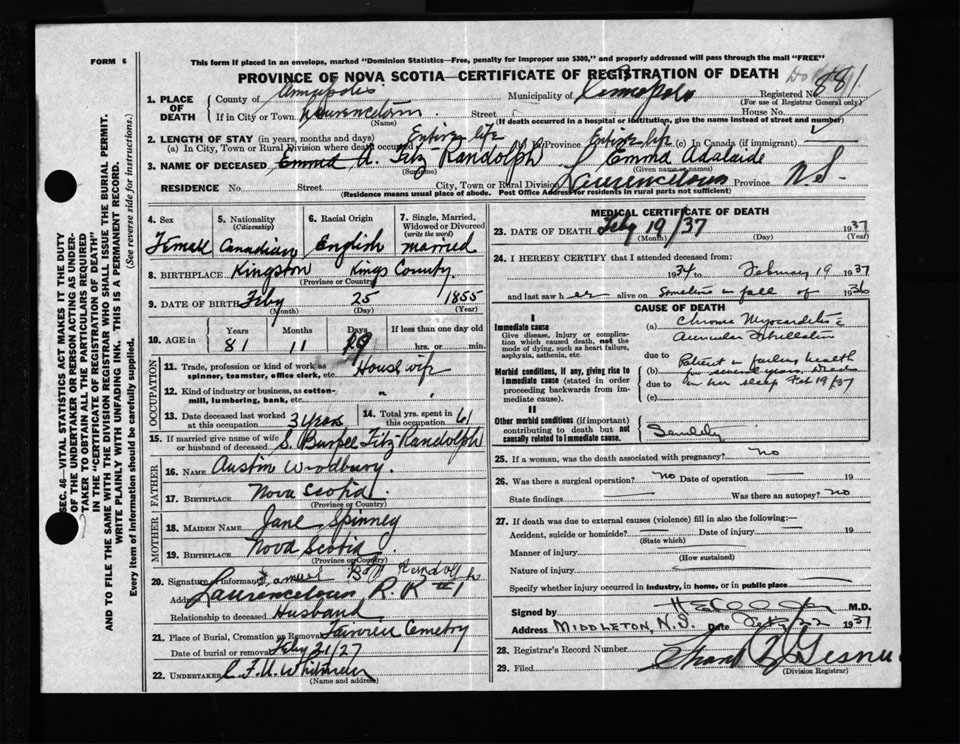 FORM 6
This form if placed in an envelope, marked "Dominion Statistics—Free, penalty for improper use $300," and properly addressed will pass through the mail "FREE"
PROVINCE OF NOVA SCOTIA—CERTIFICATE OF REGISTRATION OF DEATH
881
1. PLACE OF DEATH
County of Annapolis Municipality of Annapolis Registered No.
(For use of Registrar General only)
If in City or Town Lawrencetown Street House No.
(Name) (If death occurred in a hospital or institution, give the name instead of street and number)
2. LENGTH OF STAY (in years, months and days)
(a) In City, Town or Rural Division where death occurred Entire life (b) In Province Entire life (c) In Canada (if immigrant)
3. NAME OF DECEASED Emma A. Fitz-Randolph Emma Adalaide
(Surname) (Given name or names)
RESIDENCE No. Street City, Town or Rural Division Lawrencetown Province N.S.
(Residence means usual place of abode. Post Office Address for residents in rural parts not sufficient)
4. Sex Female
5. Nationality (Citizenship) Canadian
6. Racial Origin English
7. Single, Married, Widowed or Divorced (write the word) married
8. BIRTHPLACE Kingston Kings County.
(Province or Country)
9. DATE OF BIRTH Feby 25 1855
(Month) (Day) (Year)
10. AGE in Years Months Days If less than one day old
81 11 hrs. or min.
OCCUPATION
11. Trade, profession or kind of work as spinner, teamster, office clerk, etc. House wife
12. Kind of industry or business, as cotton-mill, lumbering, bank, etc. " "
13. Date deceased last worked at this occupation 3 years
14. Total yrs. spent in this occupation 61
15. If married give name of wife or husband of deceased S. Burpee Fitz-Randolph
FATHER
16. NAME Austin Woodbury.
17. BIRTHPLACE Nova Scotia.
(Province or Country)
MOTHER
18. MAIDEN NAME Jane Spinney
19. BIRTHPLACE Nova Scotia.
(Province or Country)
20. Signature of informant
Address Lawrencetown R. R #1
Relationship to deceased Husband
21. Place of Burial, Cremation or Removal Fairview Cemetry
Date of burial or removal Feby 21/27
22. UNDERTAKER
(Name and address)
MEDICAL CERTIFICATE OF DEATH
23. DATE OF DEATH Feby 19/37 1937
(Month) (Day) (Year)
24. I HEREBY CERTIFY that I attended deceased from:
1934 to February 19 1937
and last saw her alive on Sometime in fall of 1936
CAUSE OF DEATH
I
Immediate cause
Give disease, injury or complication which caused death, not the mode of dying, such as heart failure, asphyxia, asthenia, etc.
(a) Chronic Myocarditis &
Auricular Fibrillation
due to
Morbid conditions, if any, giving rise to immediate cause (stated in order proceeding backwards from immediate cause).
(b) Patient in failing health
for several years. Died
due to in her sleep Feb 19/37
(c)
II
Other morbid conditions (if important) contributing to death but not causally related to immediate cause. Senility
25. If a woman, was the death associated with pregnancy? no
26. Was there a surgical operation? no Date of operation 19
State findings Was there an autopsy? no
27. If death was due to external causes (violence) fill in also the following:—
Accident, suicide or homicide? Date of injury 19
(State which)
Manner of injury
(How sustained)
Nature of injury
Specify whether injury occurred in industry, in home, or in public place
Signed by M.D.
Address MIDDLETON, N.S. Date Feb/22 1937
28. Registrar's Record Number
29. Filed
(Division Registrar)
SEC. 46—VITAL STATISTICS ACT MAKES IT THE DUTY
OF THE UNDERTAKER OR PERSON ACTING AS UNDER-
TAKER TO OBTAIN ALL THE PARTICULARS REQUIRED
IN THE "CERTIFICATE OF REGISTRATION OF DEATH"
AND TO FILE THE SAME WITH THE DIVISION REGISTRAR WHO SHALL ISSUE THE BURIAL PERMIT.
WRITE PLAINLY WITH UNFADING INK. THIS IS A PERMANENT RECORD.
Every item of information should be carefully supplied. (See reverse side for instructions.)